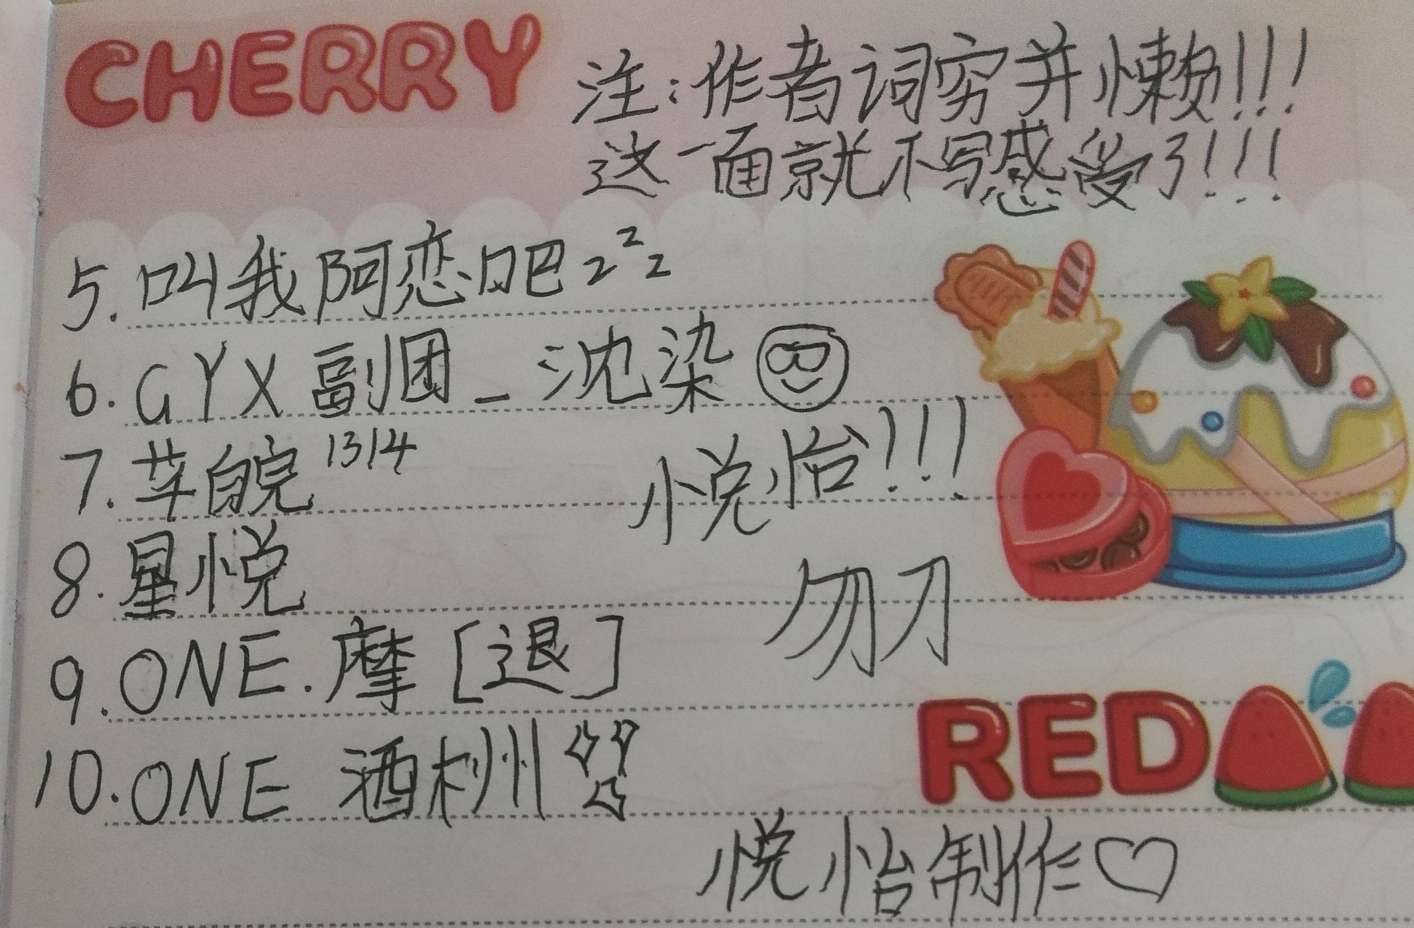 CHERRY
注:作者词穷并懒!!!
这一面就不写感受了!!!
5.叫我阿恋吧zzz
6.GYX副团_沈染
7.苹皖1314
悦怡!!!
8.星悦
勿刀
9.ONE.摩[退]
RED
10.ONE 酒州
悦怡制作♡